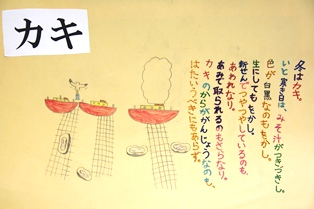 カキ
冬はカキ。
いと寒き日は、みそ汁がつきづきし。
色が白黒なのもをかし。
生にしてもをかし。
新せんでつやつやしているのも、
あわれなり。
あみで取られるのもさらなり。
カキのからががんじょうなのも、
はたいうべきにもあらず。